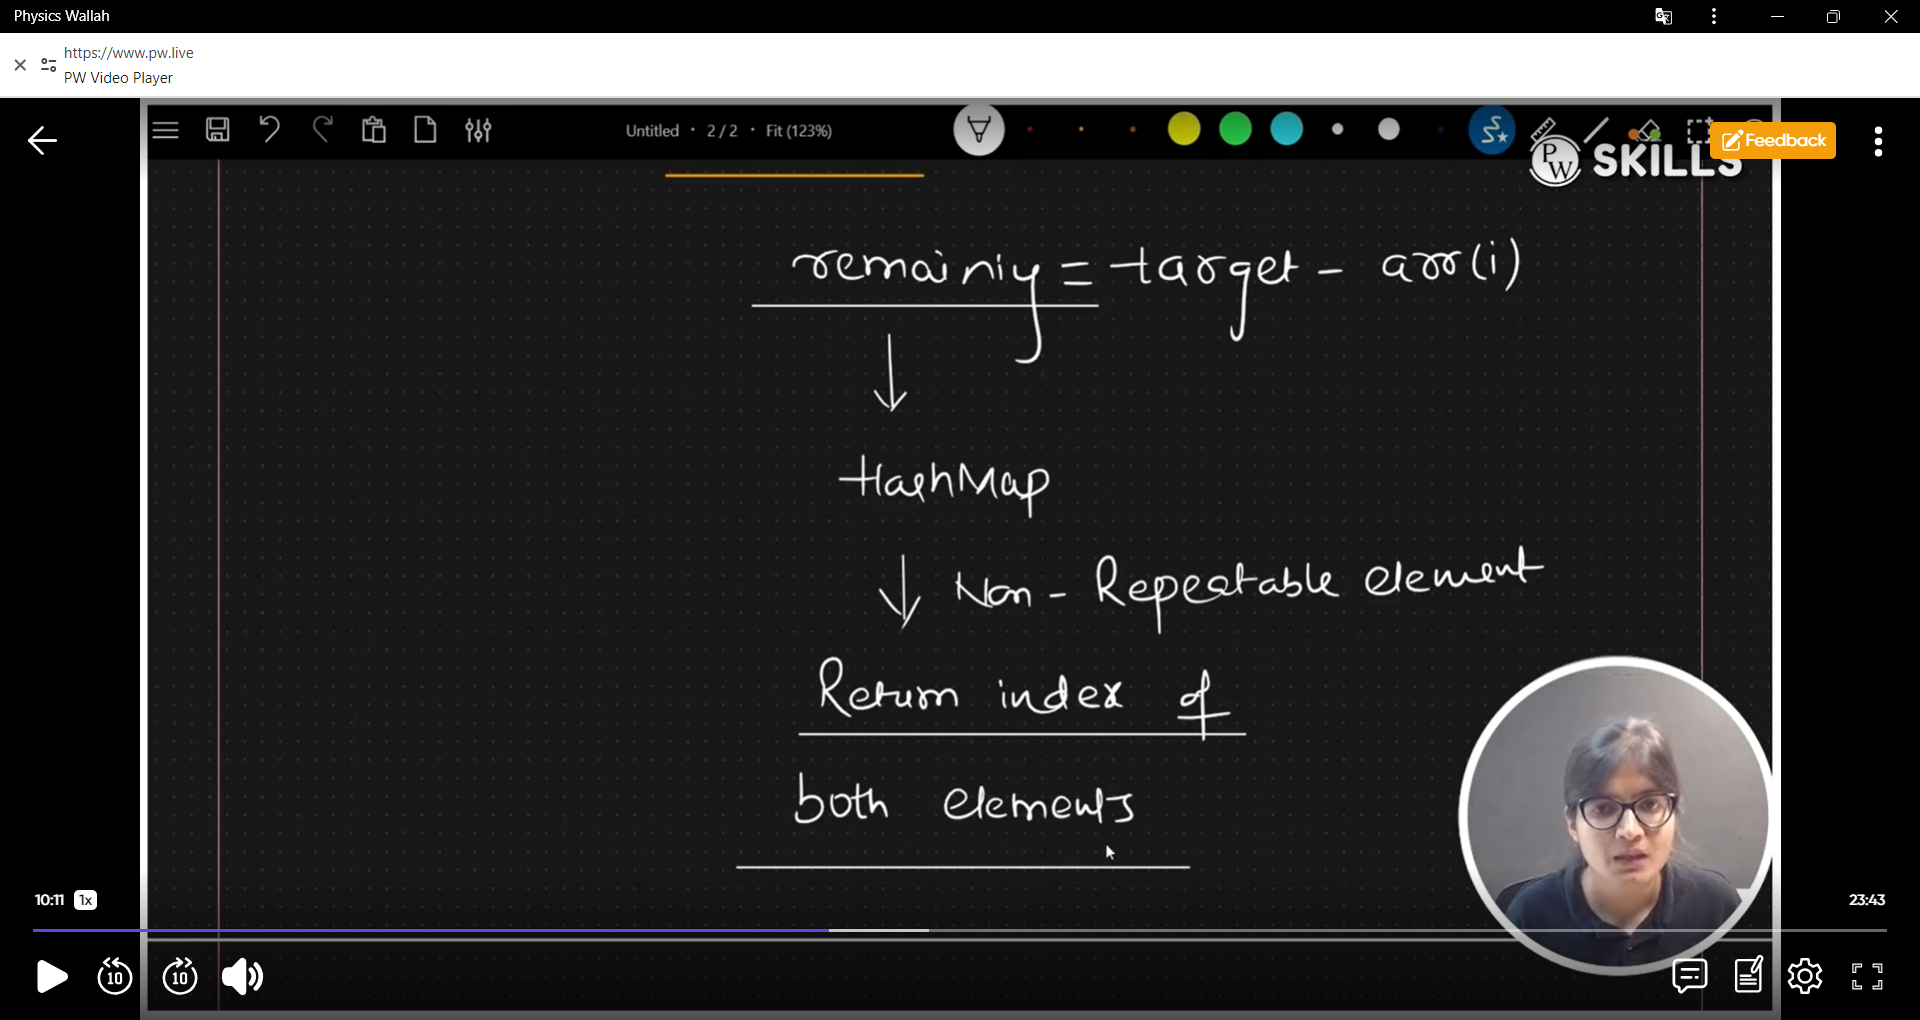 Physics Wallah
https://www.pw.live
PW Video Player
Untitled · 2/2 · Fit (123%)
Feedback
PW SKILLS
remainiy = target - arr(i)
HashMap
Non - Repeatable element
Return index of
both elements
10:11 1x
23:43
10 10